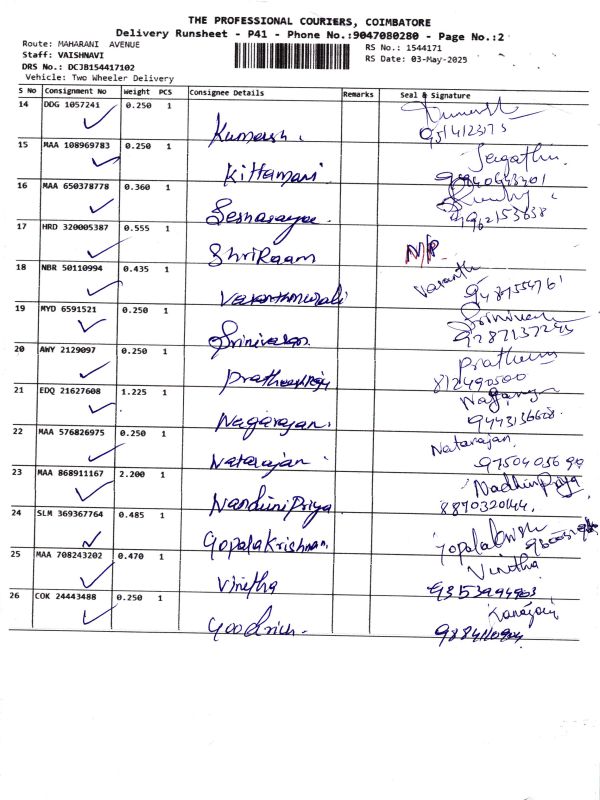 THE PROFESSIONAL COURIERS, COIMBATORE
Delivery Runsheet - P41 - Phone No.:9047080280 - Page No.:2
Route: MAHARANI AVENUE
RS No.: 1544171
Staff: VAISHNAVI
RS Date: 03-May-2025
DRS No.: DCJB154417102
Vehicle: Two Wheeler Delivery
S No Consignment No Weight PCS Consignee Details Remarks Seal & Signature
14 DDG 1057241 0.250 1
Kumaresh.
9514123175
15 MAA 108969783 0.250 1
Kittamani
16 MAA 650378778 0.360 1
9962153638
17 HRD 320005387 0.555 1
ShriRaam N/P
18 NBR 50110994 0.435 1
Vasanthmurali Vasanth
9487554761
19 MYD 6591521 0.250 1
Srinivasan
9287137244
20 AWY 2129097 0.250 1
812490500
21 EDQ 21627608 1.225 1
Nagarajan.
9443136608.
22 MAA 576826975 0.250 1
Natarajan. Natarajan
23 MAA 868911167 2.200 1
NandiniPriya
8870320144.
24 SLM 369367764 0.485 1
GopalaKrishnan.
25 MAA 708243202 0.470 1
Vinitha Vinitha
26 COK 24443488 0.250 1
Goodrich.